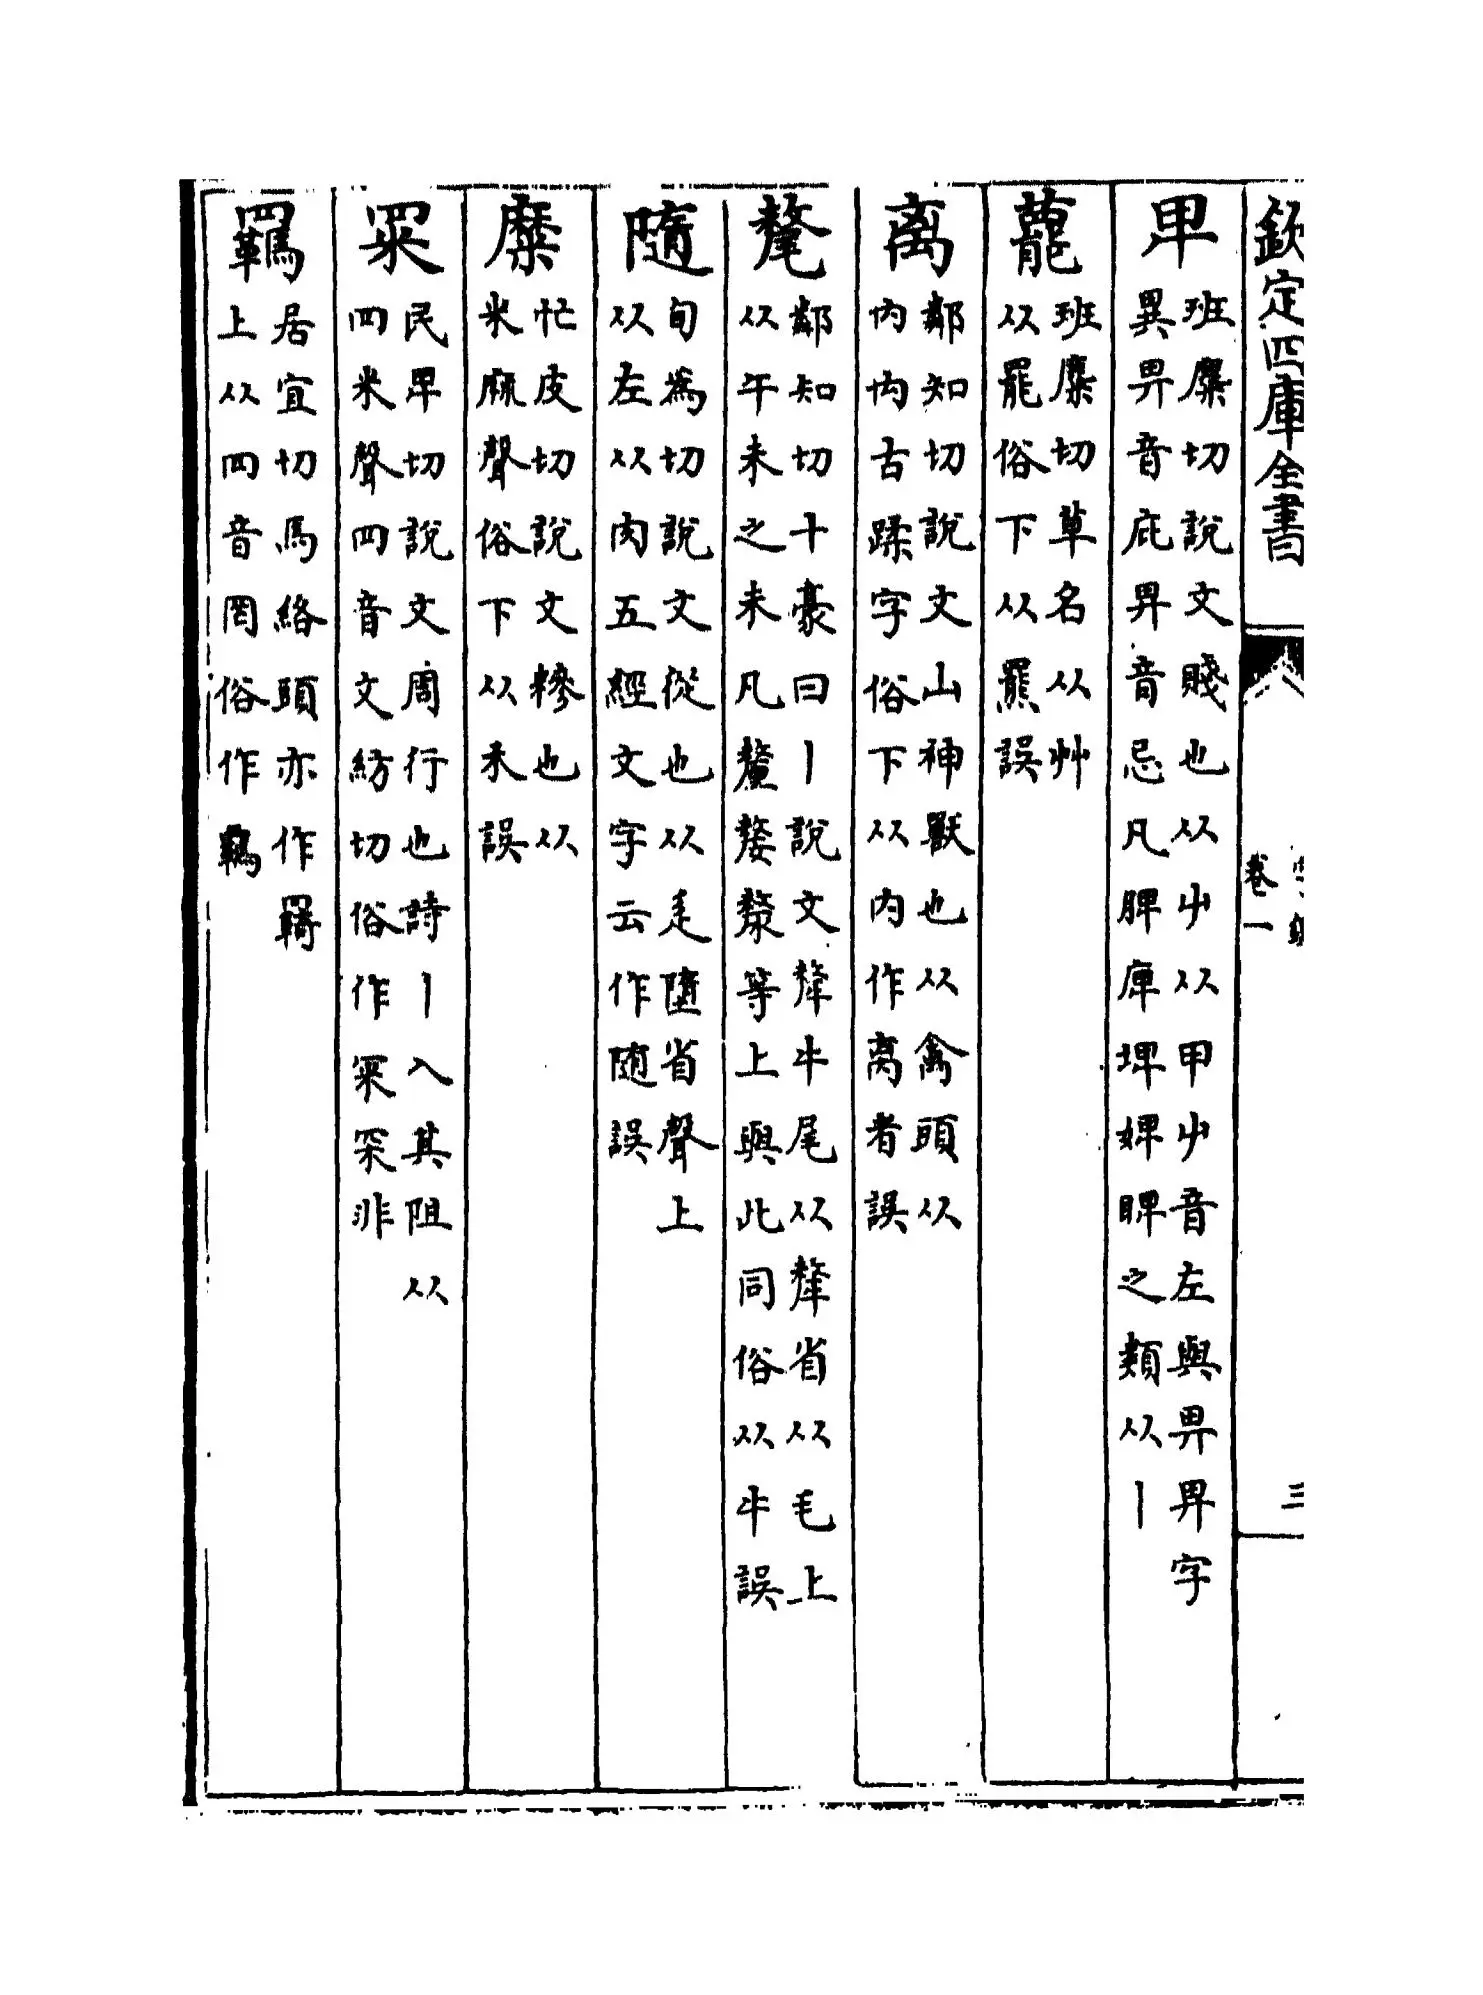 欽定四庫全書
卷一
三
𤰞
班麋切說文賤也从𠂇从甲𠂇音左與畀畁字
異畀音庇畁音忌凡脾庳埤婢睥之類从丨
蘢
班麋切草名从艸
从罷俗下从羆誤
离
鄰知切說文山神獸也从禽頭从
禸禸古蹂字俗下从内作禼者誤
氂
鄰知切十豪曰丨說文犛牛尾从犛省从毛上
从午未之未凡釐嫠漦等上與此同俗从牛誤
隨
旬為切說文從也从辵墮省聲上
从左以肉五經文字云作随誤
糜
忙皮切說文糝也从
米麻聲俗下从木誤
罙
民卑切說文周行也詩丨入其阻从
网米聲网音文紡切俗作冞罙非
羈
居宜切馬絡頭亦作羇
上从网音罔俗作覊